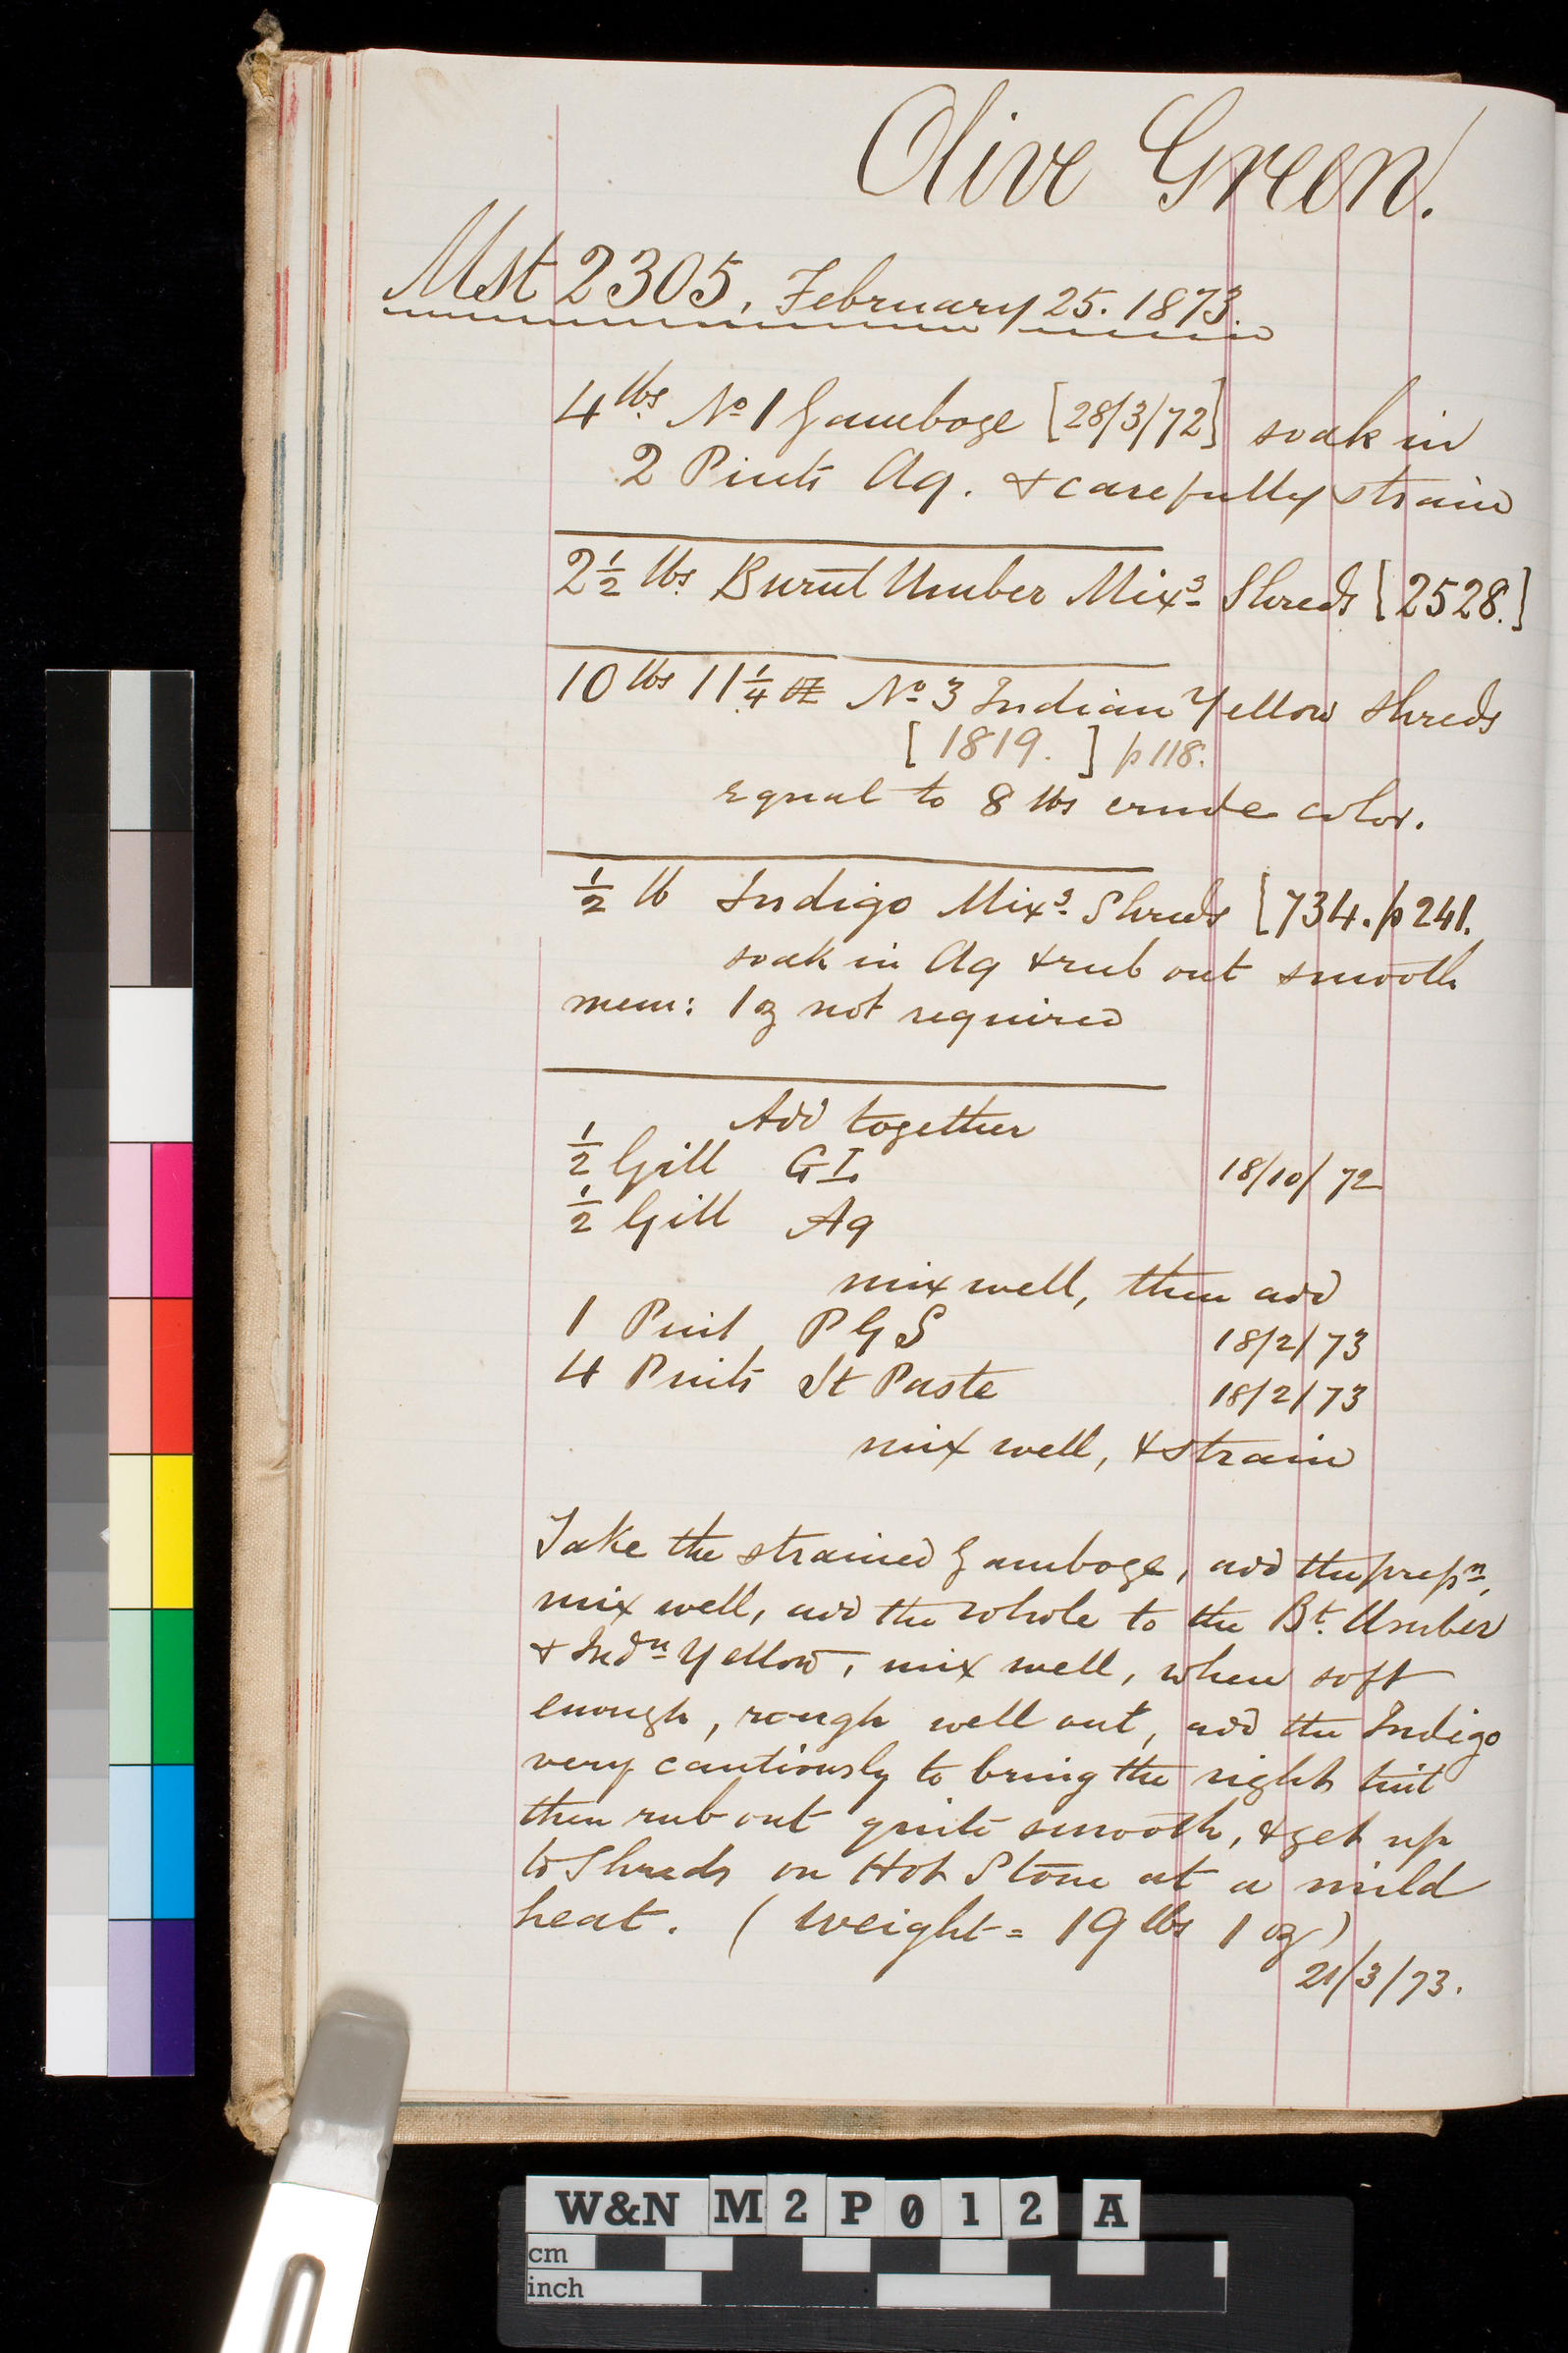 Olive Green.
Mst 2305, February 25. 1873.
4 lbs No 1 Gamboge [28/3/72] soak in
2 Pints Aq. & carefully strain
2½ lbs Burnt Umber Mixg Shreds [2528.]
10 lbs 11¼ oz No 3 Indian Yellow Shreds
[1819. ] p118.
equal to 8 lbs crude color.
½ lb Indigo Mixg Shreds [734. p241.
soak in Aq & rub out smooth
mem: 1 oz not required
Add together
½ Gill GI. 18/10/72
½ Gill Aq
mix well, then add
1 Pint PGS 18/2/73
4 Pints St Paste 18/2/73
mix well, & strain
Take the strained Gamboge, add the prepn,
mix well, add the whole to the Bt. Umber
& Indn Yellow, mix well, when soft
enough, rough well out, add the Indigo
very cautiously to bring the right tint
then rub out quite smooth, & get up
to Shreds on Hot Stone at a mild
heat. (Weight = 19 lbs 1 oz)
21/3/73.
W&N M2P012 A
cm
inch